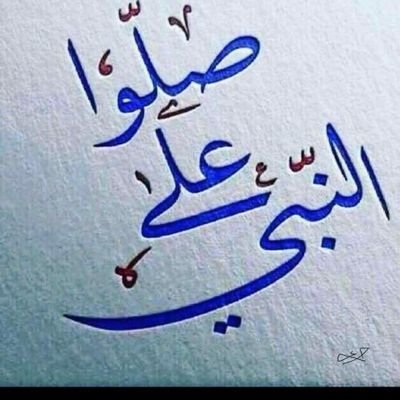 صلّوا
على
النبّي